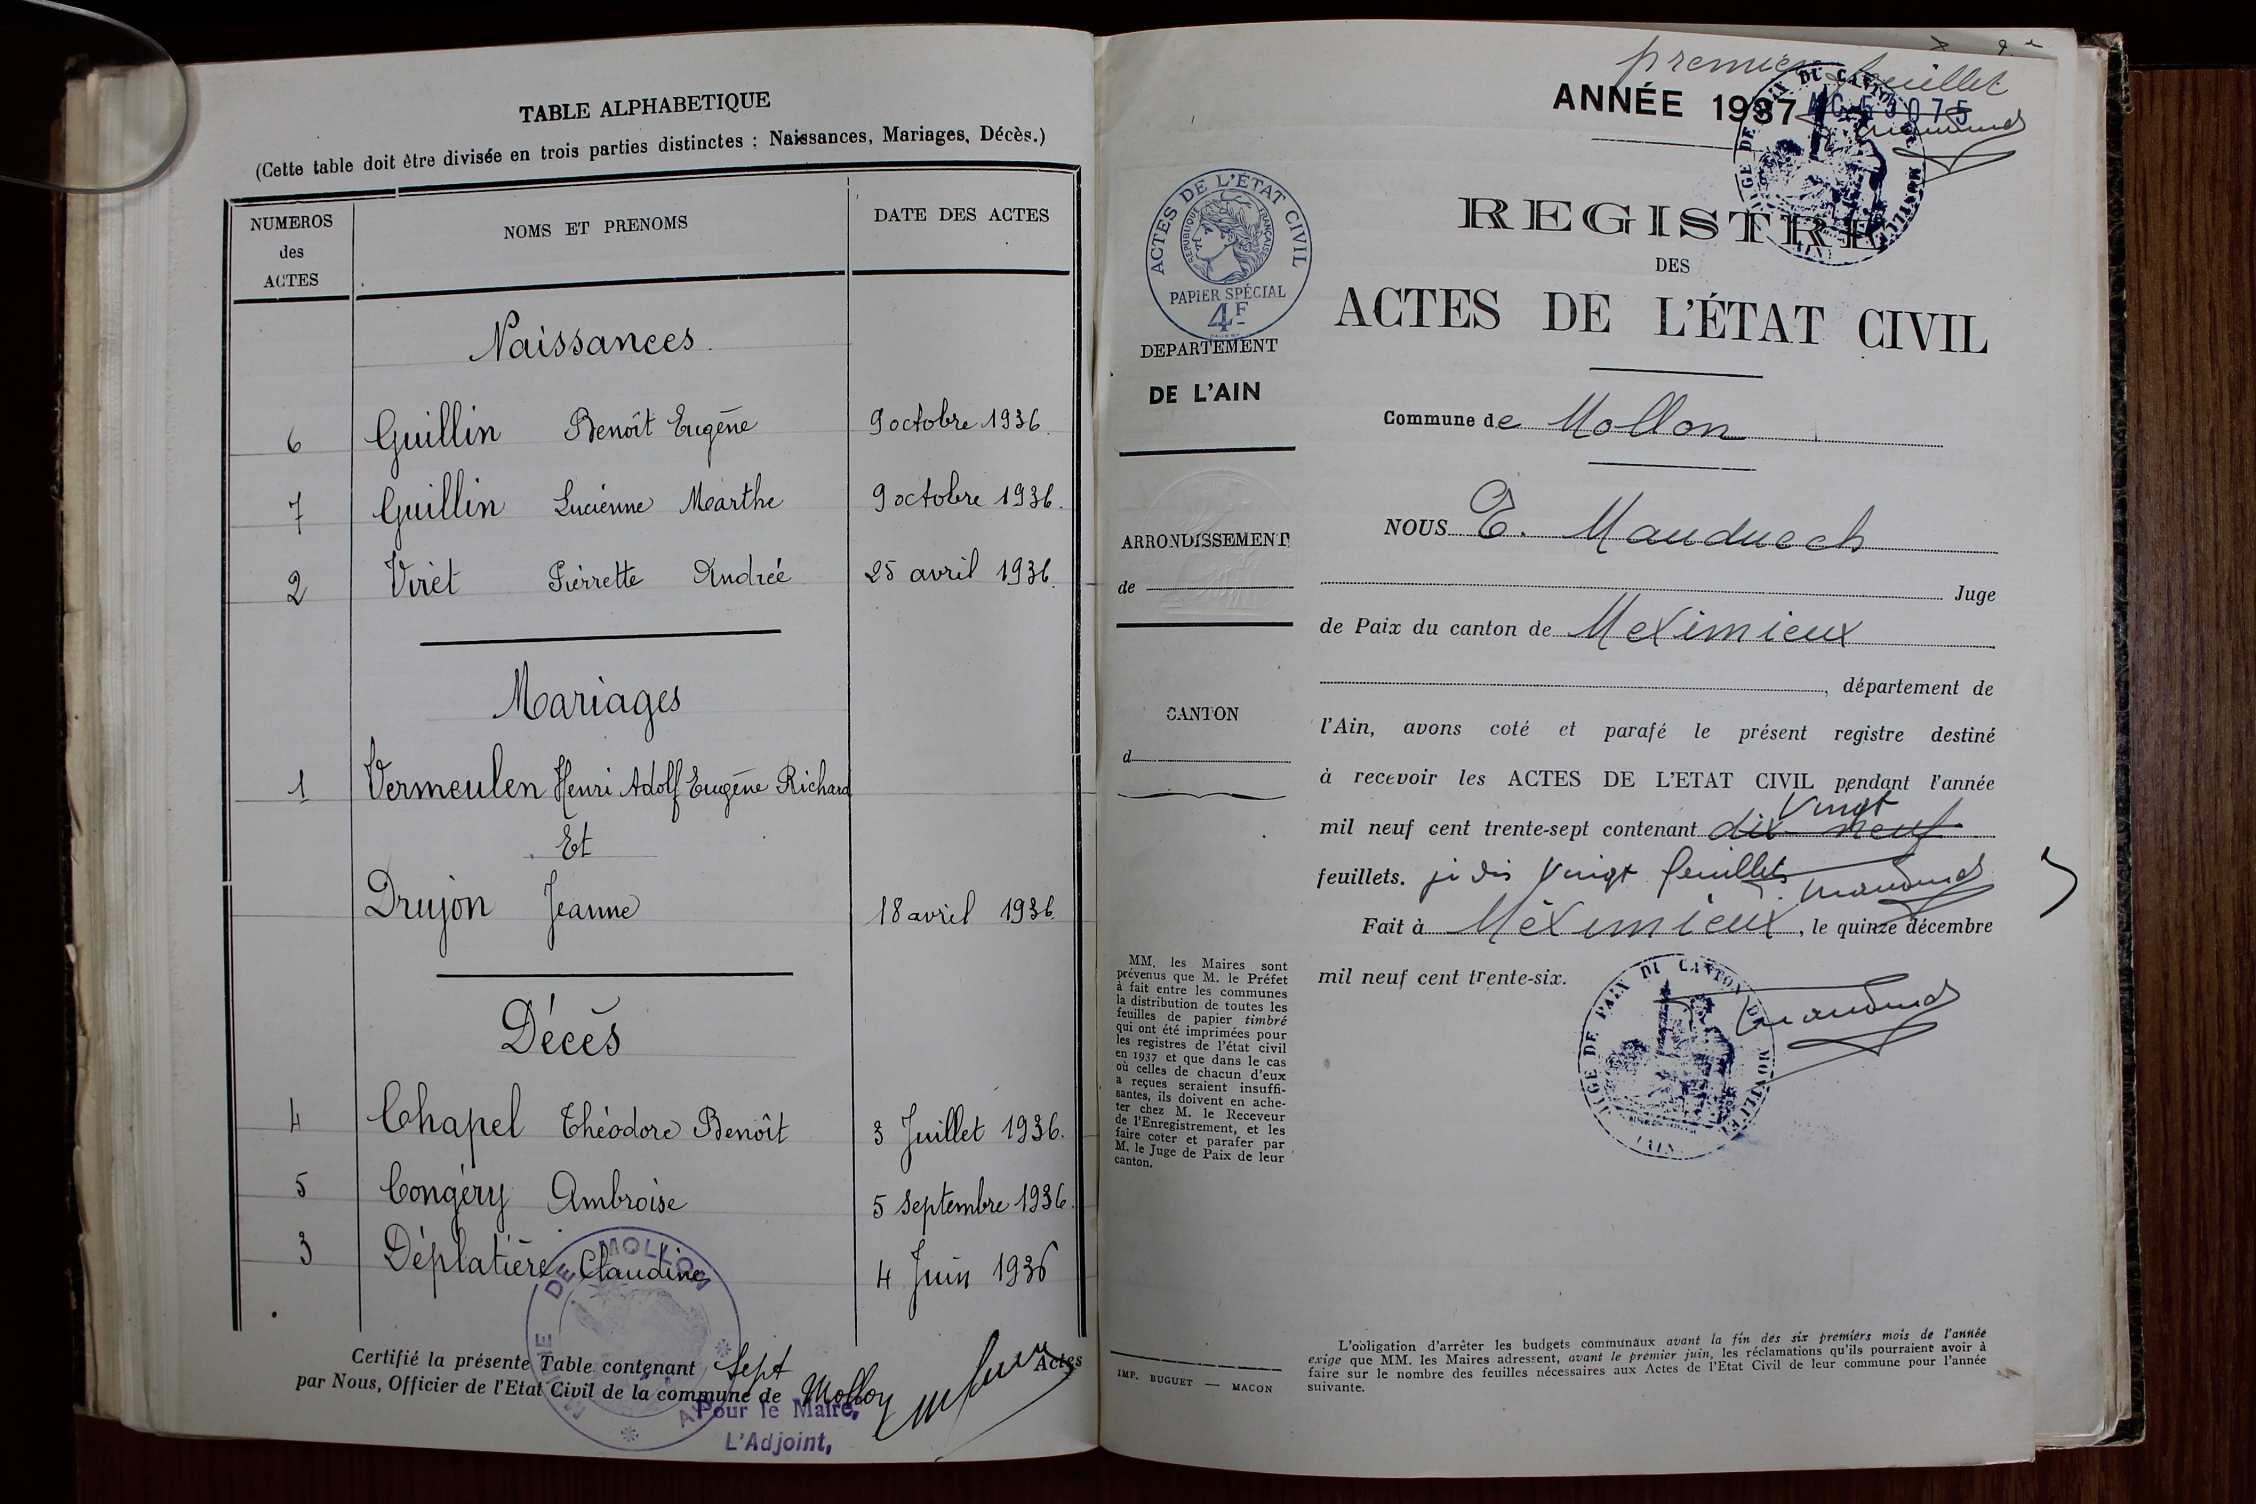 TABLE ALPHABETIQUE
(Cette table doit être divisée en trois parties distinctes : Naissances, Mariages, Décès.)
NUMEROS des ACTES
NOMS ET PRENOMS
DATE DES ACTES
Naissances
6 Guillin Benoît Eugène 9 octobre 1936.
7 Guillin Lucienne Marthe 9 octobre 1936.
2 Viret Pierrette Andrée 25 avril 1936.
Mariages
1 Vermeulen Henri Adolf Eugène Richard
Et
Drujon Jeanne 18 avril 1936.
Décès
4 Chapel Théodore Benoît 3 Juillet 1936.
5 Congéry Ambroise 5 Septembre 1936.
3 Déplatière Claudine 4 Juin 1936
MAIRIE DE MOLLON AIN
Certifié la présente Table contenant Sept Actes
par Nous, Officier de l'Etat Civil de la commune de Mollon
Pour le Maire,
L'Adjoint,
premier feuillet
ANNÉE 1937
REGISTRE
DES
ACTES DE L'ÉTAT CIVIL
ACTES DE L'ETAT CIVIL
REPUBLIQUE FRANÇAISE
PAPIER SPÉCIAL
4F
DEPARTEMENT
DE L'AIN
ARRONDISSEMENT
de
CANTON
d
Commune de Mollon
NOUS E. Mauduech
Juge
de Paix du canton de Meximieux
, département de
l'Ain, avons coté et parafé le présent registre destiné
à recevoir les ACTES DE L'ETAT CIVIL pendant l'année
Vingt
mil neuf cent trente-sept contenant dix neuf
feuillets. je dis Vingt feuillets
Fait à Méximieux, le quinze décembre
mil neuf cent trente-six.
MM. les Maires sont
prévenus que M. le Préfet
à fait entre les communes
la distribution de toutes les
feuilles de papier timbré
qui ont été imprimées pour
les registres de l'état civil
en 1937 et que dans le cas
où celles de chacun d'eux
a reçues seraient insuffi-
santes, ils doivent en ache-
ter chez M. le Receveur
de l'Enregistrement, et les
faire coter et parafer par
M. le Juge de Paix de leur
canton.
IMP. BUGUET — MACON
L'obligation d'arrêter les budgets communaux avant la fin des six premiers mois de l'année
exige que MM. les Maires adressent, avant le premier juin, les réclamations qu'ils pourraient avoir à
faire sur le nombre des feuilles nécessaires aux Actes de l'Etat Civil de leur commune pour l'année
suivante.